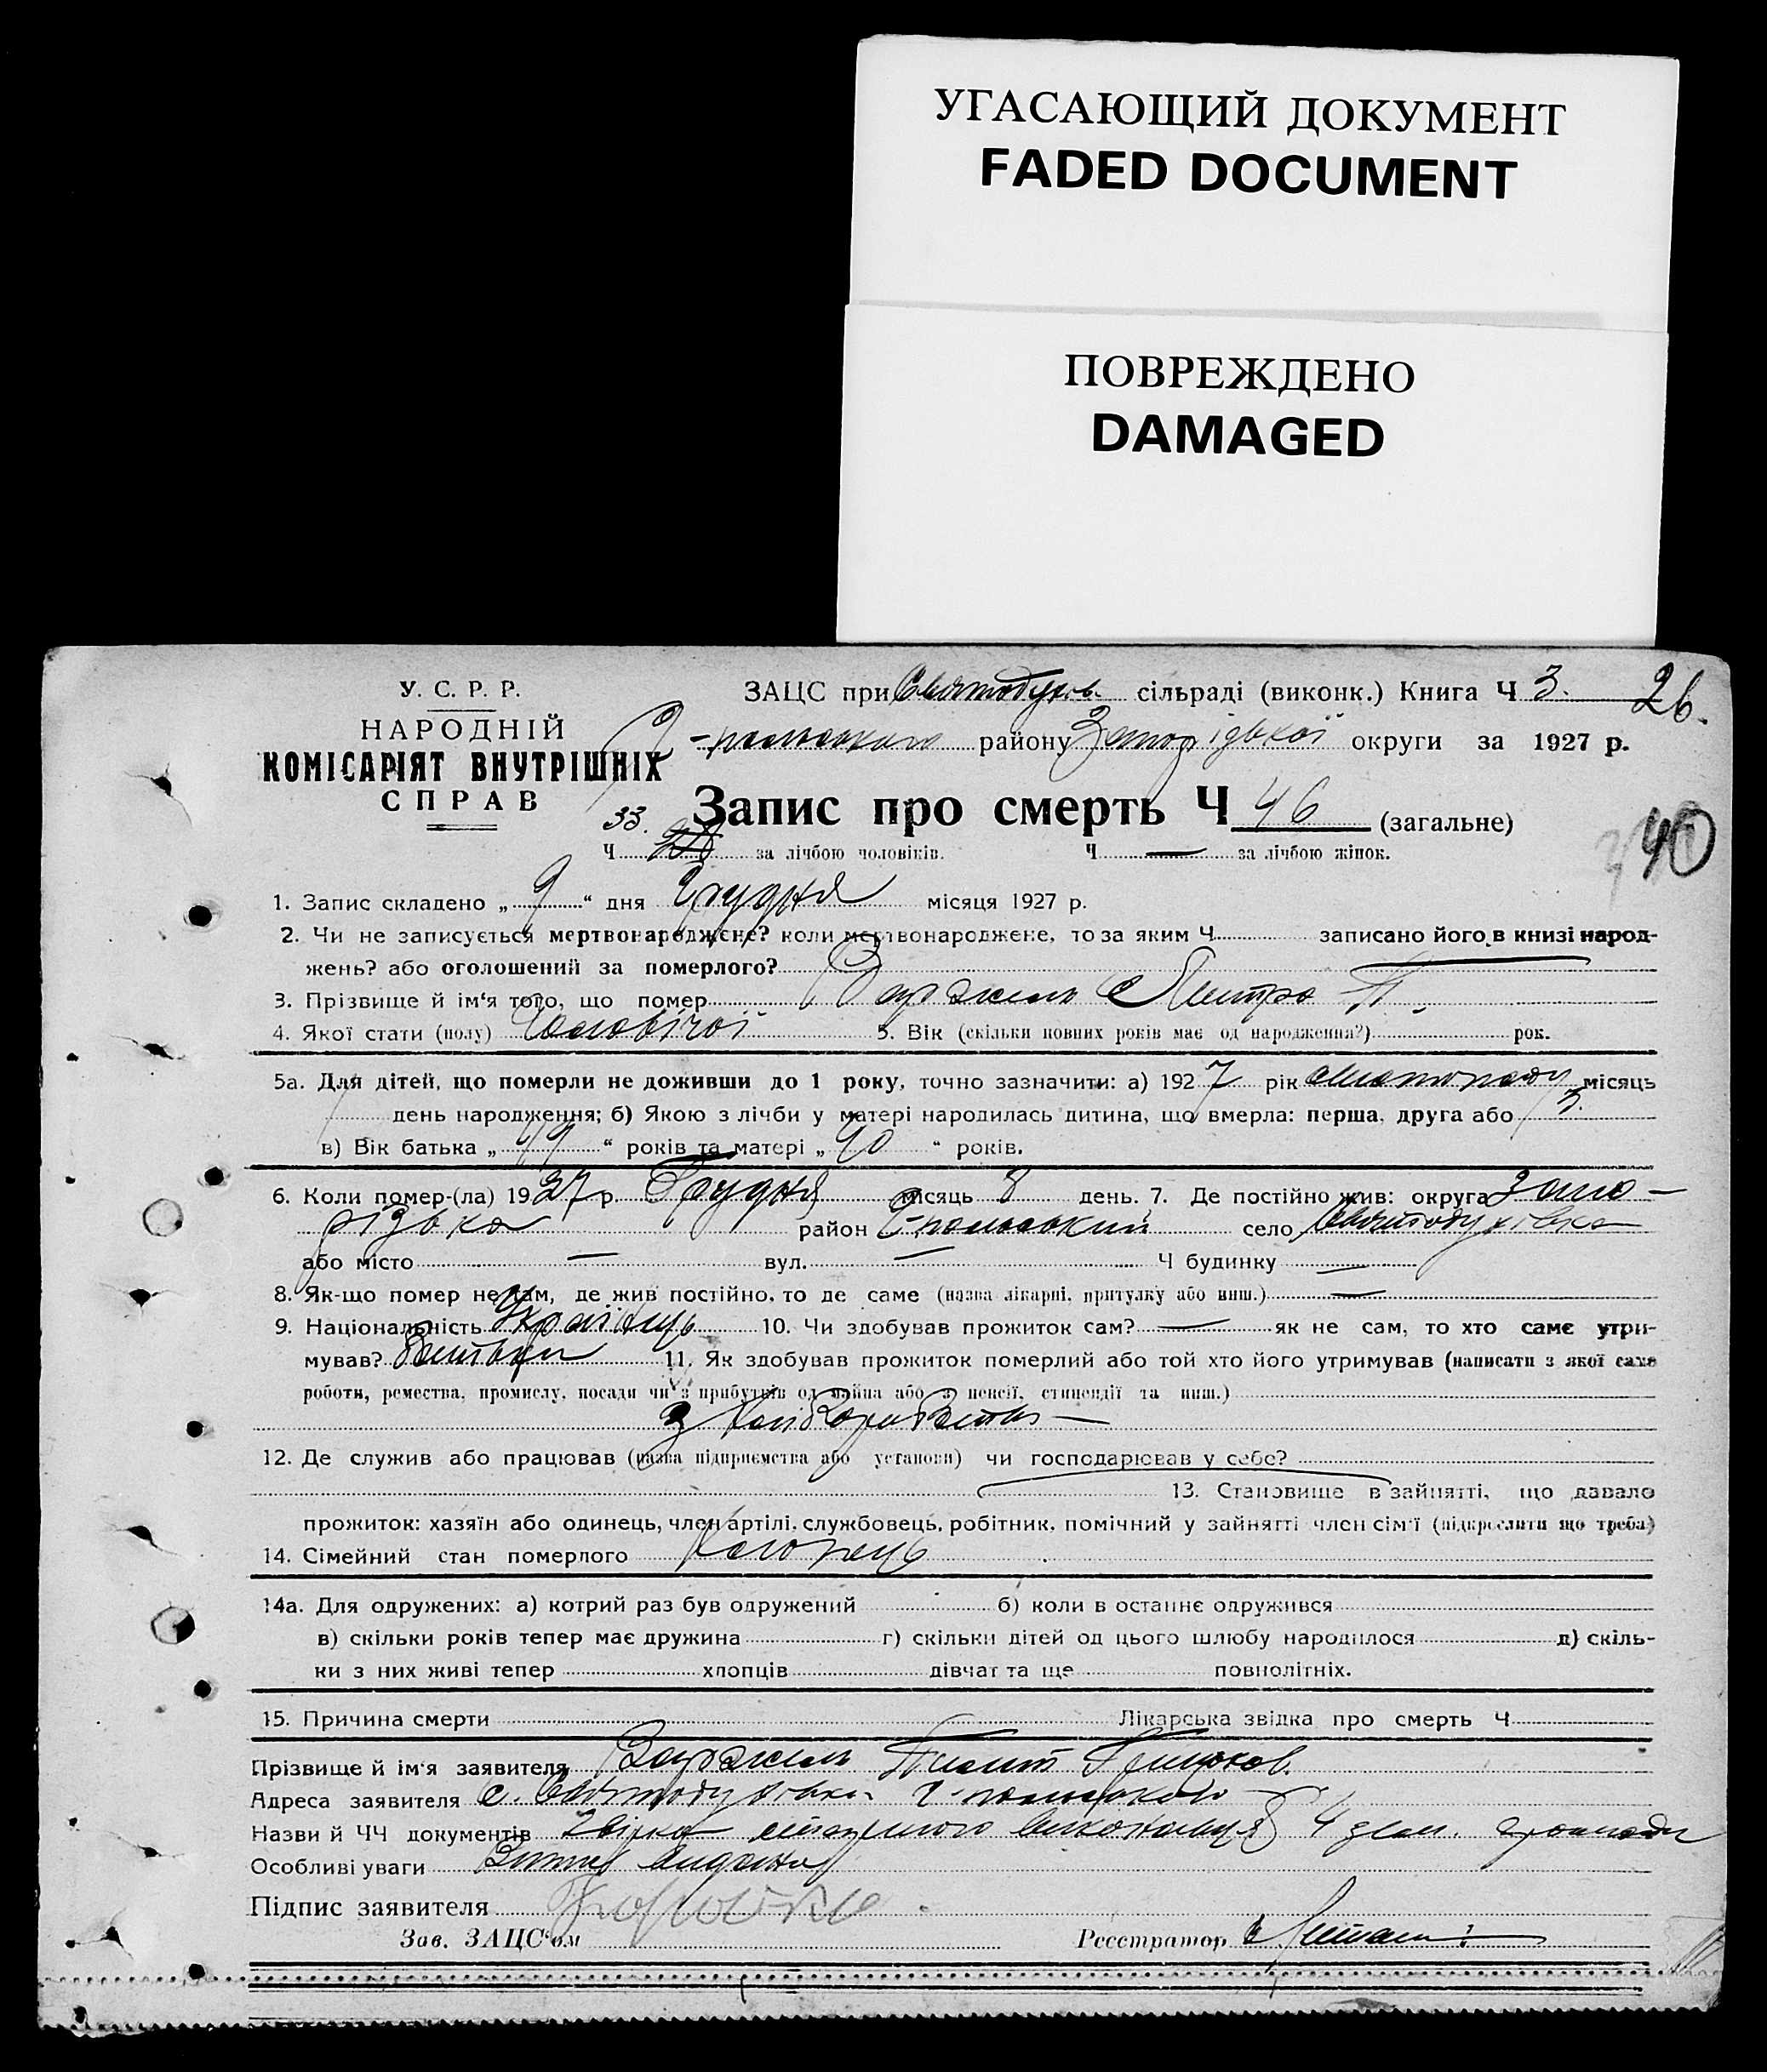 УГАСАЮЩИЙ ДОКУМЕНТ
FADED DOCUMENT
ПОВРЕЖДЕНО
DAMAGED
У. С. Р. Р.
НАРОДНІЙ
КОМІСАРІЯТ ВНУТРІШНІХ
СПРАВ
ЗАЦС при Святодухів. сільраді (виконк.) Книга Ч 3. 26.
району округи за 1927 р.
Запис про смерть Ч 46 (загальне)
40
33.
Ч. за лічбою чоловіків. Ч. — за лічбою жінок.
1. Запис складено „ 9 “ дня Грудня місяця 1927 р.
2. Чи не записується мертвонароджене? коли мертвонароджене, то за яким Ч. записано його в книзі народ-
жень? або оголошений за померлого?
3. Прізвище й ім'я того, що помер Дмитро П.
4. Якої стати (полу) Чоловічої 5. Вік (скільки повних років має од народження?) рок.
5а. Для дітей, що померли не доживши до 1 року, точно зазначити: а) 1927 рік Листопаду місяць
день народження; б) Якою з лічби у матері народилась дитина, що вмерла: перша, друга або
в) Вік батька „ 49 “ років та матері „ 40 “ років.
6. Коли помер-(ла) 1927 р. Грудня місяць 8 день. 7. Де постійно жив: округа Запо-
різька район село Святодухівка
або місто — вул. — Ч будинку —
8. Як-що помер не там, де жив постійно, то де саме (назва лікарні, притулку або инш.) —
9. Національність Українець 10. Чи здобував прожиток сам? — як не сам, то хто саме утри-
мував? Батьки 11. Як здобував прожиток померлий або той хто його утримував (написати з якої саме
роботи, ремества, промислу, посади чи з прибутків од майна або з пенсії, стипендії та инш.)
з Хліборобства —
12. Де служив або працював (назва підприємства або установи) чи господарював у себе?
13. Становище в зайнятті, що давало
прожиток: хазяїн або одинець, член артілі, службовець, робітник, помічний у зайнятті член сім'ї (підкреслити що треба)
14. Сімейний стан померлого
14а. Для одружених: а) котрий раз був одружений б) коли в останнє одружився
в) скільки років тепер має дружина г) скільки дітей од цього шлюбу народилося д) скіль-
ки з них живі тепер хлопців дівчат та ще повнолітніх.
15. Причина смерти Лікарська звідка про смерть Ч
Прізвище й ім'я заявителя
Адреса заявителя с. Святодухівка
Назви й ЧЧ документів
Особливі уваги
Підпис заявителя
Зав. ЗАЦС'ом Реєстратор